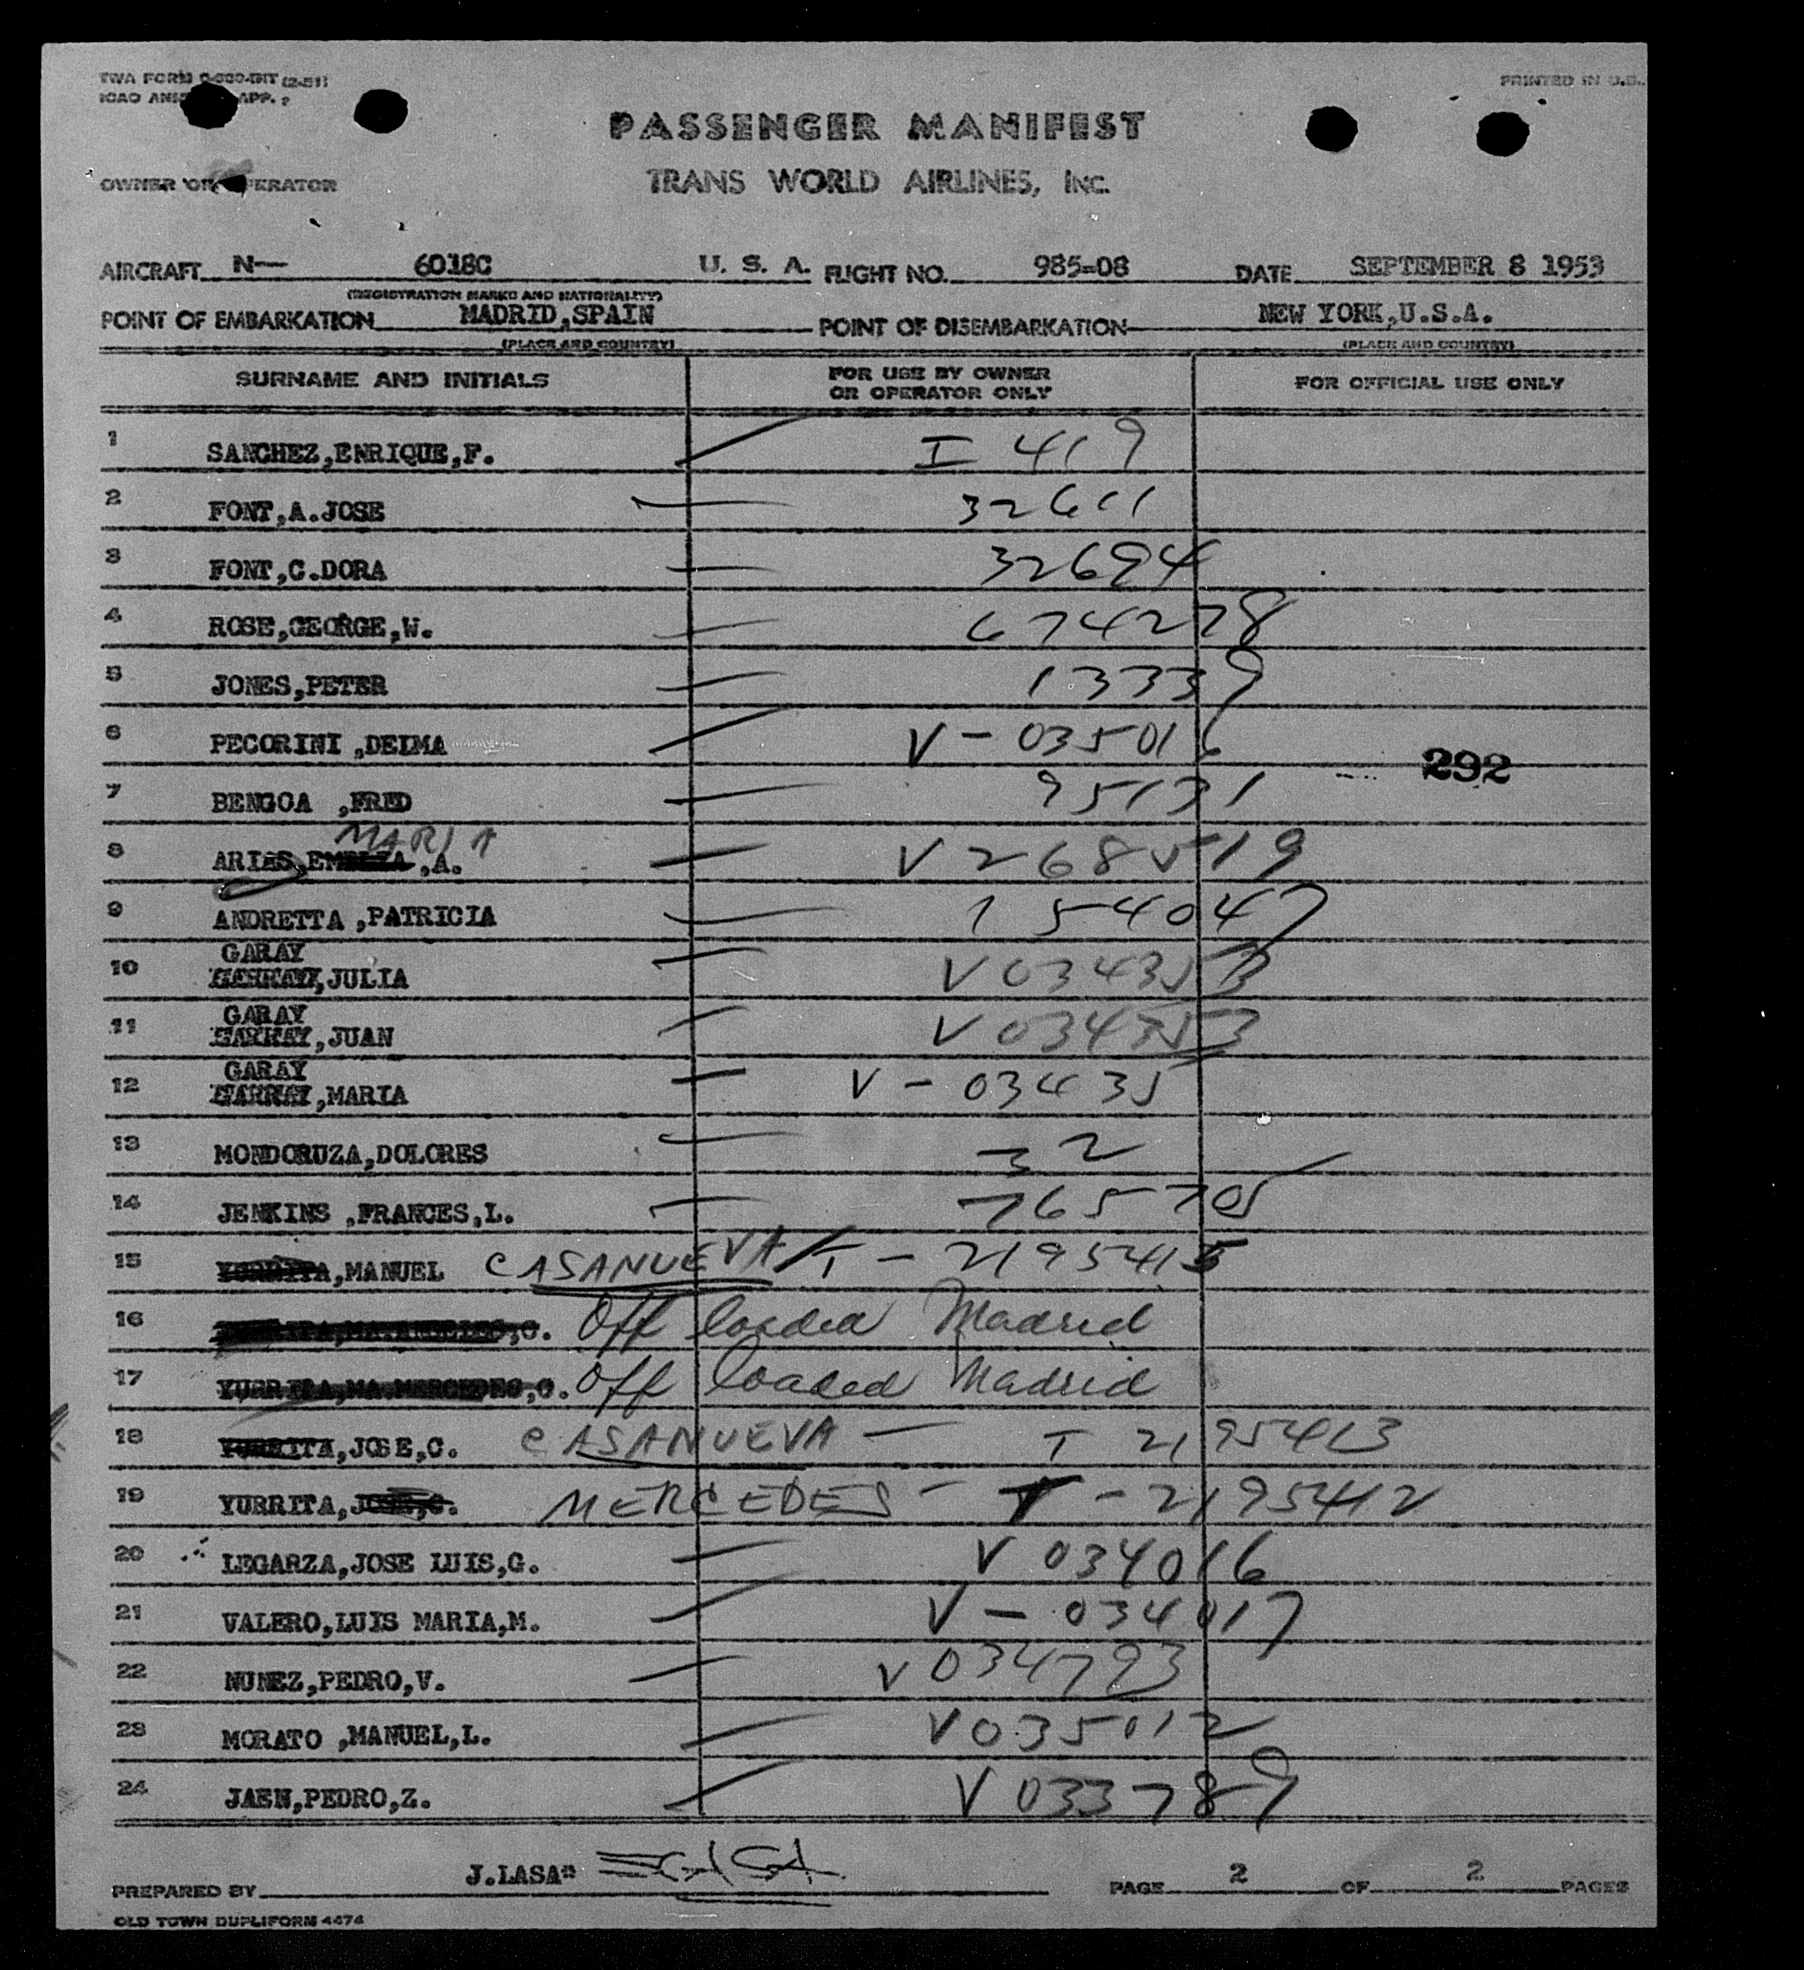 TWA FORM (2-51)
PRINTED IN U.S.
ICAO APP.
PASSENGER MANIFEST
OWNER OR OPERATOR
TRANS WORLD AIRLINES, INC.
AIRCRAFT N— 6018C U. S. A. FLIGHT NO. 985-08 DATE SEPTEMBER 8 1953
(REGISTRATION MARKS AND NATIONALITY)
POINT OF EMBARKATION MADRID,SPAIN POINT OF DISEMBARKATION NEW YORK,U.S.A.
(PLACE AND COUNTRY) (PLACE AND COUNTRY)
SURNAME AND INITIALS FOR USE BY OWNER OR OPERATOR ONLY FOR OFFICIAL USE ONLY
1 SANCHEZ,ENRIQUE,F. I 419
2 FONT,A.JOSE 32611
3 FONT,C.DORA 32694
4 ROSE,GEORGE,W. 674278
5 JONES,PETER 13339
6 PECORINI ,DELMA V-035016
292
7 BENGOA ,FRED 95131
MARIA
8 ARIAS, ,A. V268519
9 ANDRETTA ,PATRICIA 154047
GARAY
10 ,JULIA V034353
GARAY
11 ,JUAN V034353
GARAY
12 ,MARIA V-03435
13 MONDORUZA,DOLORES 32
14 JENKINS ,FRANCES,L. 765705
15 YURRITA,MANUEL CASANUEVA T-2195415
16 Off loaded Madrid
17 YURRITA,MA.MERCEDES,C. Off loaded Madrid
18 YURRITA,JOSE,C. CASANUEVA — T 2195413
19 YURRITA,JOSE,C. MERCEDES - T-2195412
20 LEGARZA,JOSE LUIS,G. V 034016
21 VALERO,LUIS MARIA,M. V-034017
22 NUNEZ,PEDRO,V. V034793
23 MORATO ,MANUEL,L. V035012
24 JAEN,PEDRO,Z. V033789
PREPARED BY J.LASA PAGE 2 OF 2 PAGES
OLD TOWN DUPLIFORM 4474